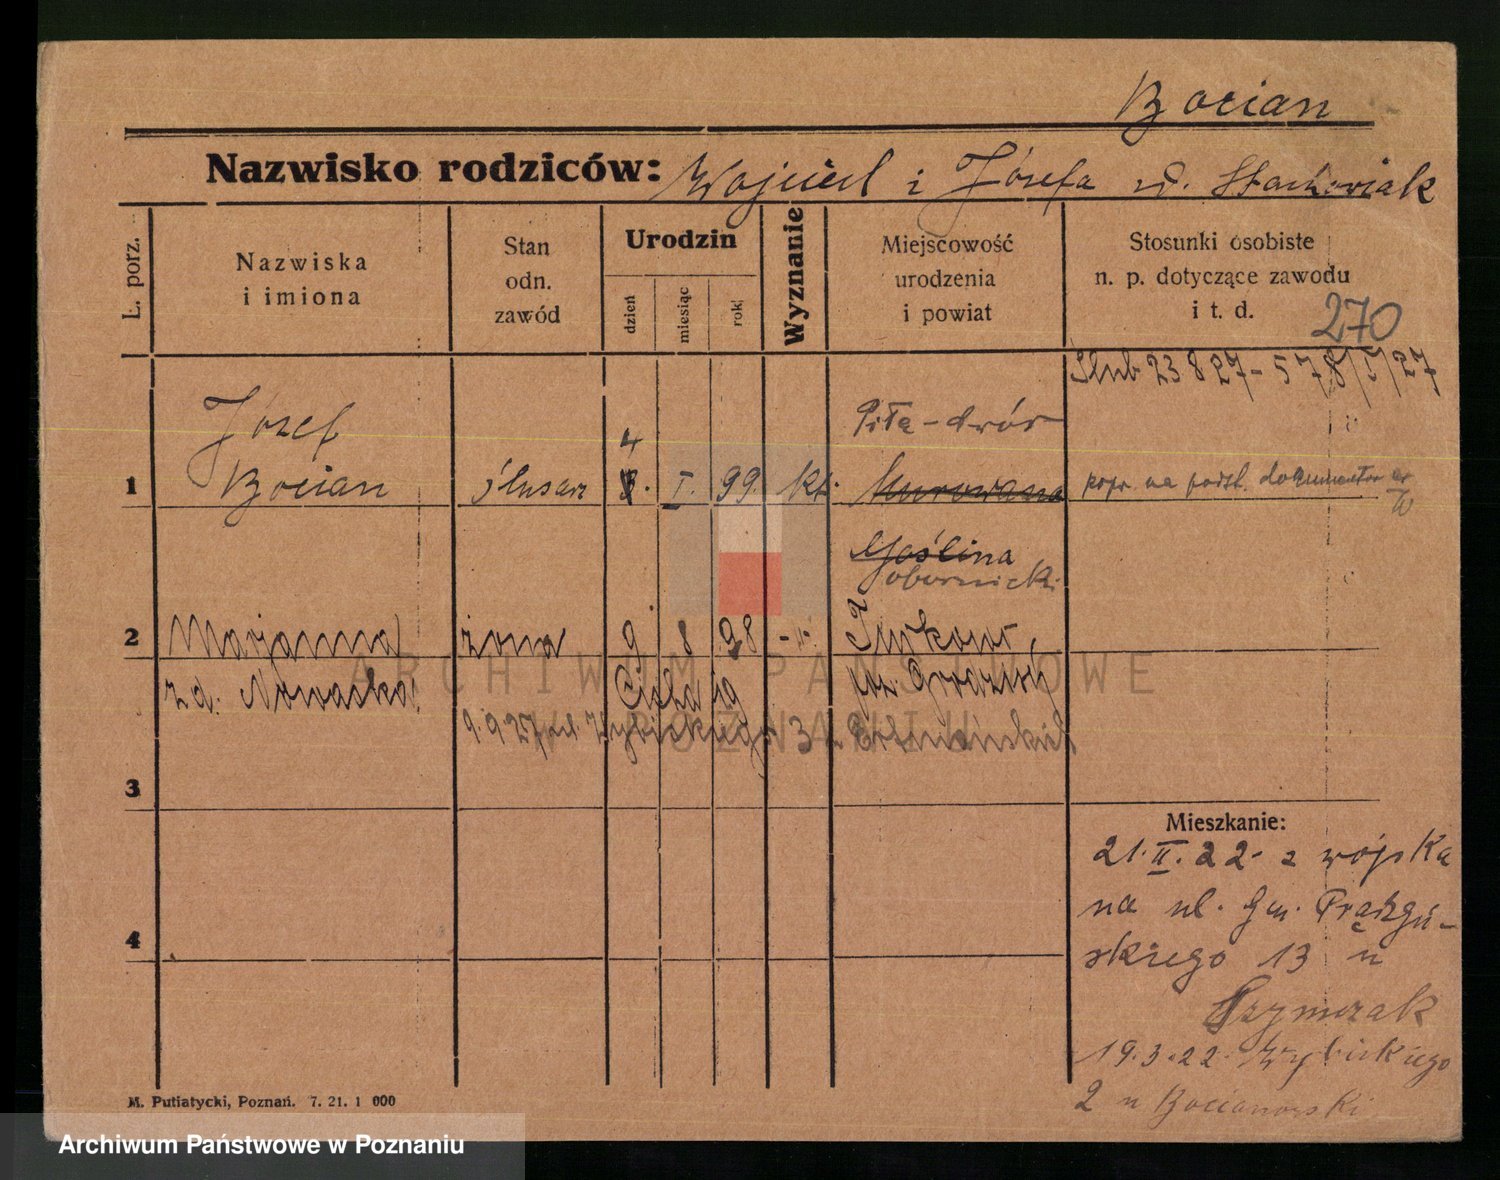 Bocian
Nazwisko rodziców: Wojciech i Józefa z d. Stachowiak
L. porz.
Nazwiska
i imiona
Stan
odn.
zawód
Urodzin
dzień
miesiąc
rok
Wyznanie
Miejscowość
urodzenia
i powiat
Stosunki osobiste
n. p. dotyczące zawodu
i t. d.
270
Ślub 23 8 27 - 578/
Józef
Piła - dwór
4
1 Bocian ślusarz I. 99. kt. Murowana popr. na podst. dokumentów
Goślina
obornicki
2 Marjanna żona 9 8 98 -„-
z d. Nowaska
9.9.27 ul. Wybickiego 3
3
Mieszkanie:
21.II.22 z wojska
na ul. Gen. Prądzyń-
skiego 13 u
Szymczak
19.3.22. Wybickiego
2 u Bocianowski
4
M. Putiatycki, Poznań. 7. 21. 1 000
ARCHIWUM PAŃSTWOWE
W POZNANIU
Archiwum Państwowe w Poznaniu